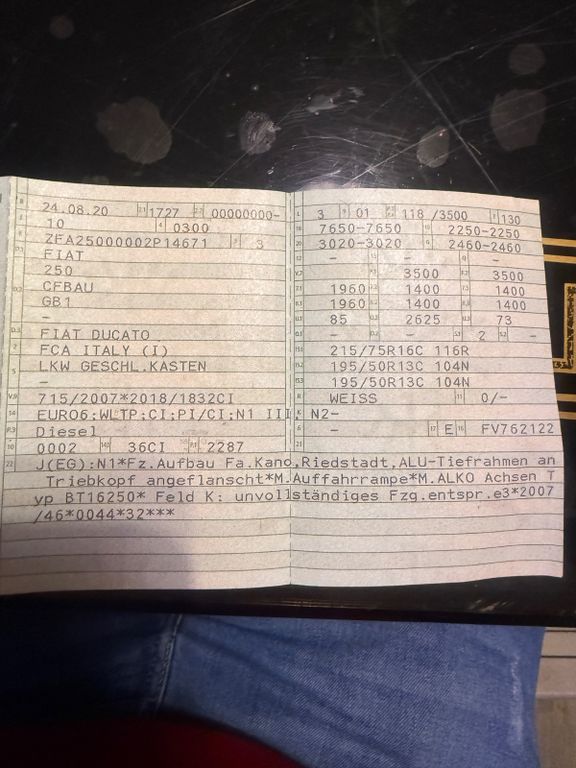 24.08.20 1727 00000000-
10 0300
ZFA25000002P14671 3
FIAT
250
CFBAU
GB1
-
FIAT DUCATO
FCA ITALY (I)
LKW GESCHL.KASTEN
-
715/2007*2018/1832CI
EURO6;WLTP;CI;PI/CI;N1 III; N2-
Diesel
0002 36CI 2287
3 01 118 /3500 130
7650-7650 2250-2250
3020-3020 2460-2460
- - -
- 3500 3500
1960 1400 1400
1960 1400 1400
85 2625 73
- - 2 -
215/75R16C 116R
195/50R13C 104N
195/50R13C 104N
WEISS 0/-
- E FV762122
22 J(EG):N1*Fz.Aufbau Fa.Kano,Riedstadt,ALU-Tiefrahmen an
Triebkopf angeflanscht*M.Auffahrrampe*M.ALKO Achsen T
yp BT16250* Feld K: unvollständiges Fzg.entspr.e3*2007
/46*0044*32***